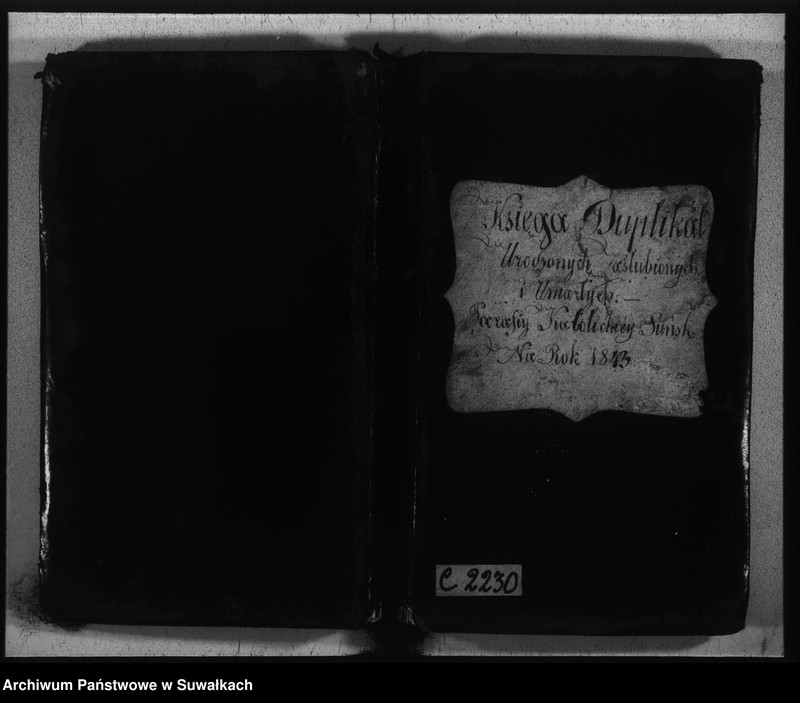 Księga Duplikat
Urodzonych zaślubionych
i Umarłych. —
Parafiy Katolickiey Puńsk
Na Rok 1843
C 2230
Archiwum Państwowe w Suwałkach